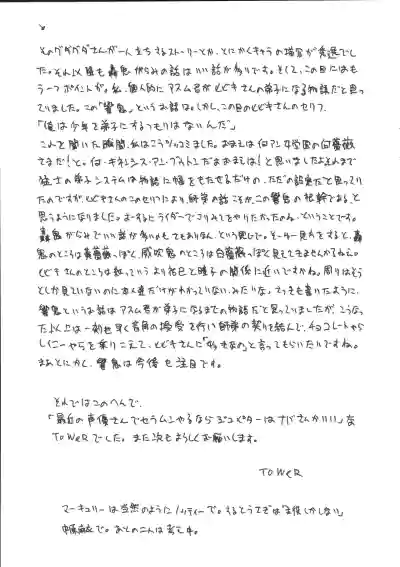 そのグダグダさんがーん立ちするストーリーとか、とにかくキャラの描写が秀逸でし
た。それ以降も轟鬼がらみの話はいい話が多いです。そして、この回にはも
う一つポイントが。私、個人的にアスム君がヒビキさんの弟子になる物語だと思っ
ていました。この「響鬼」というお話は。しかし、この回のヒビキさんのセリフ、
「俺は少年を弟子にするつもりはないんだ」
これを聞いた瞬間、私はこうツッコミました。おまえは何アン女学園の白薔薇
さまだ！と。何・キネンシス・アン・ブゥトンだよおまえは！と思いましたよ。それまで
猛士の弟子システムは物語に幅をもたせるだけの、ただの設定だと思ってい
たのですが、ヒビキさんのこのセリフにより、師弟の話こそが、この響鬼の根幹である、と
思うようになりました。ようするにライダーでマリみてをやりたかったのね、ということです。
轟鬼がらみでいい話が多いのもてもありなん、という感じで。そーゆー見方をすると、轟
鬼のところは黄薔薇っぽく、威吹鬼のところは白薔薇っぽく見えてきませんかねぇ。
ヒビキさんのところは敢えていうより祐巳と瞳子の関係に近いですかね。周りはそう
としか見ていないのに本人達だけがわかっていない、みたいな。さっきも書いたように、
響鬼というお話はアスム君が弟子になるまでの物語だと思っていましたが、こうなっ
た以上は一刻も早く音角の授受を行い師弟の契りを結んで、チョコレートやら
レイニーやらを乗りこえて、ヒビキさんに「 」と言ってもらいたいですね。
まぁとにかく、響鬼は今後も注目です。
それではこのへんで、
「最近の声優さんでセラムンやるならジュピターは がいい」な
TOWERでした。また次もよろしくお願いします。
TOWER
マーキュリーは当然のようにノリティーで。するとうさぎは「主役しかしない」
中原麻衣で。あとの二人は考え中。